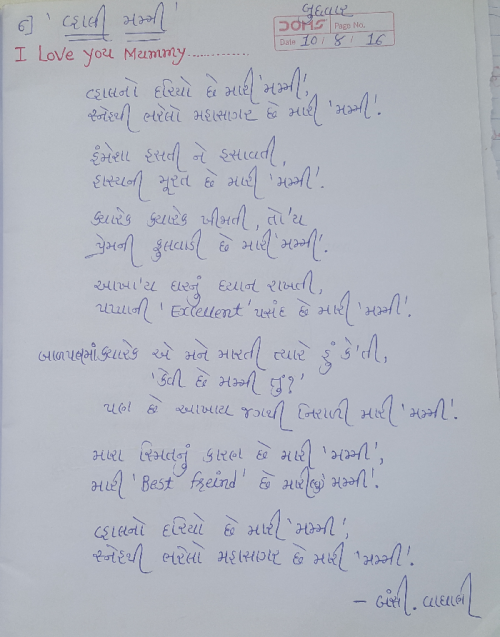 ૬] ' વ્હાલી મમ્મી '
બુધવાર
DOMS Page No.
Date 10 / 8 / 16
I Love you Mummy............
વ્હાલનો દરિયો છે મારી 'મમ્મી',
સ્નેહથી ભરેલો મહાસાગર છે મારી 'મમ્મી'.
હંમેશા હસતી ને હસાવતી,
હાસ્યની મૂરત છે મારી 'મમ્મી'.
ક્યારેક ક્યારેક ખીમતી, તો'ય
પ્રેમની ફુલવાડી છે મારી 'મમ્મી'.
આખા'ય ઘરનું ધ્યાન રાખતી,
પપ્પાની 'Excellent' પસંદ છે મારી 'મમ્મી'.
બાળપણમાં ક્યારેક એ મને મારતી ત્યારે હું કે'તી,
'કેવી છે મમ્મી તું?'
પણ છે આખાય જગથી નિરાળી મારી 'મમ્મી'.
મારા સ્મિતનું કારણ છે મારી 'મમ્મી',
મારી 'Best freind' છે મારી 'મમ્મી'.
વ્હાલનો દરિયો છે મારી 'મમ્મી',
સ્નેહથી ભરેલો મહાસાગર છે મારી 'મમ્મી'.
- બંસી. વાઘાણી